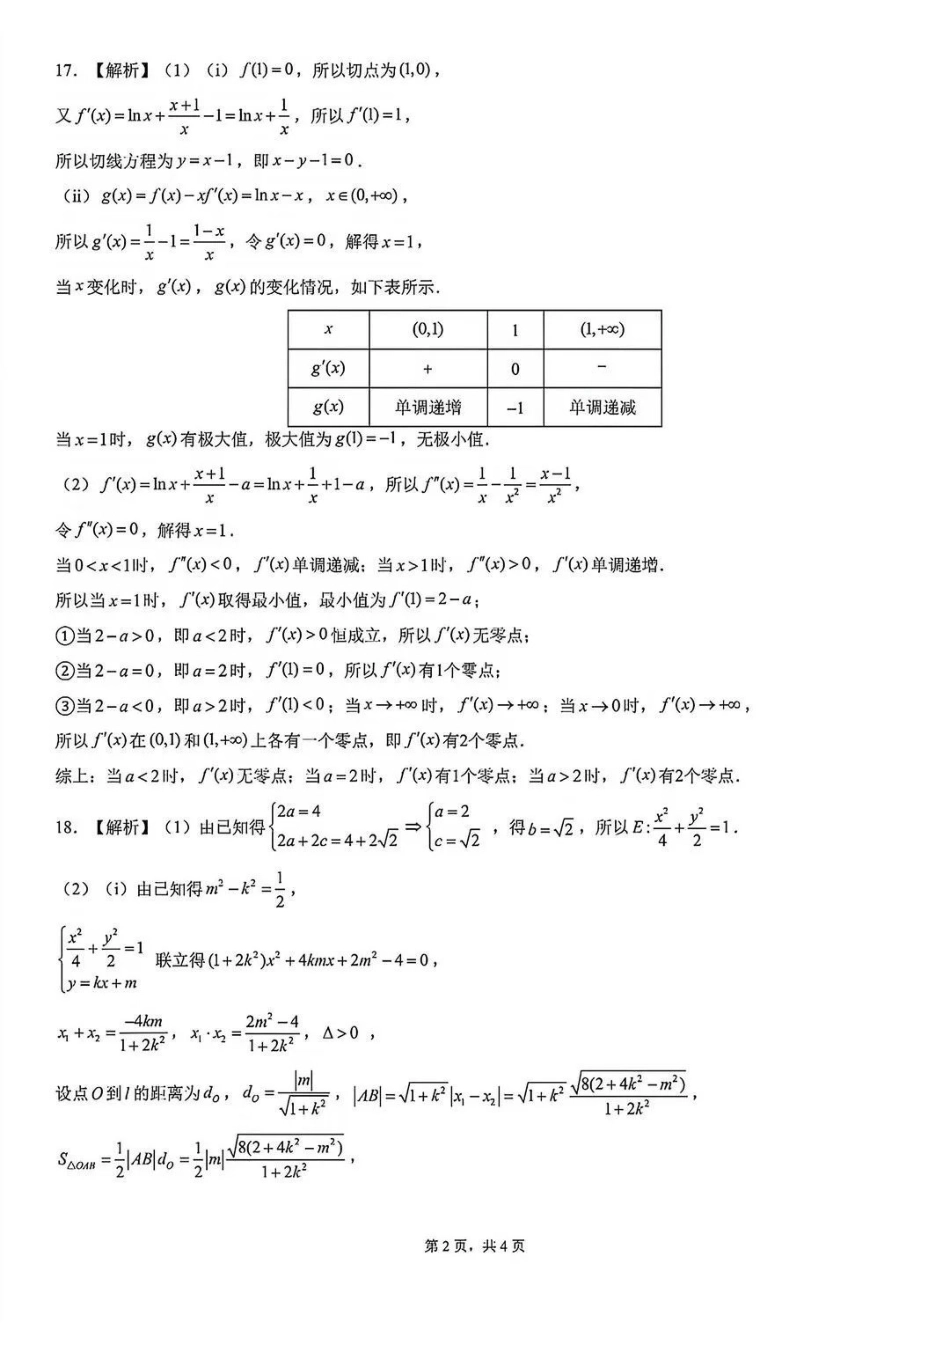 17. 【解析】(1)(i) f(1)=0，所以切点为(1,0)，
又 f′(x)=ln x+\frac{x+1}{x}-1=ln x+\frac{1}{x}，所以 f′(1)=1，
所以切线方程为 y=x-1，即 x-y-1=0.
(ii) g(x)=f(x)-xf′(x)=ln x-x，x∈(0,+∞)，
所以 g′(x)=\frac{1}{x}-1=\frac{1-x}{x}，令 g′(x)=0，解得 x=1，
当 x 变化时，g′(x)，g(x) 的变化情况，如下表所示.
x (0,1) 1 (1,+∞)
g′(x) + 0 −
g(x) 单调递增 -1 单调递减
当 x=1 时，g(x) 有极大值，极大值为 g(1)=-1，无极小值.
(2) f′(x)=ln x+\frac{x+1}{x}-a=ln x+\frac{1}{x}+1-a，所以 f″(x)=\frac{1}{x}-\frac{1}{x^2}=\frac{x-1}{x^2}，
令 f″(x)=0，解得 x=1.
当 0<x<1 时，f″(x)<0，f′(x) 单调递减；当 x>1 时，f″(x)>0，f′(x) 单调递增.
所以当 x=1 时，f′(x) 取得最小值，最小值为 f′(1)=2-a；
①当 2-a>0，即 a<2 时，f′(x)>0 恒成立，所以 f′(x) 无零点；
②当 2-a=0，即 a=2 时，f′(1)=0，所以 f′(x) 有1个零点；
③当 2-a<0，即 a>2 时，f′(1)<0；当 x→+∞ 时，f′(x)→+∞；当 x→0 时，f′(x)→+∞，
所以 f′(x) 在 (0,1) 和 (1,+∞) 上各有一个零点，即 f′(x) 有2个零点.
综上：当 a<2 时，f′(x) 无零点；当 a=2 时，f′(x) 有1个零点；当 a>2 时，f′(x) 有2个零点.
18. 【解析】(1) 由已知得 \begin{cases}2a=4\\2a+2c=4+2\sqrt{2}\end{cases} ⇒ \begin{cases}a=2\\c=\sqrt{2}\end{cases}，得 b=\sqrt{2}，所以 E:\frac{x^2}{4}+\frac{y^2}{2}=1.
(2)(i) 由已知得 m^2-k^2=\frac{1}{2}，
\begin{cases}\frac{x^2}{4}+\frac{y^2}{2}=1\\y=kx+m\end{cases} 联立得 (1+2k^2)x^2+4kmx+2m^2-4=0，
x_1+x_2=\frac{-4km}{1+2k^2}，x_1·x_2=\frac{2m^2-4}{1+2k^2}，Δ>0，
设点 O 到 l 的距离为 d_O，d_O=\frac{|m|}{\sqrt{1+k^2}}，|AB|=\sqrt{1+k^2}|x_1-x_2|=\sqrt{1+k^2}\frac{\sqrt{8(2+4k^2-m^2)}}{1+2k^2}，
S_{△OAB}=\frac{1}{2}|AB|d_O=\frac{1}{2}|m|\frac{\sqrt{8(2+4k^2-m^2)}}{1+2k^2}，
第 2 页，共 4 页